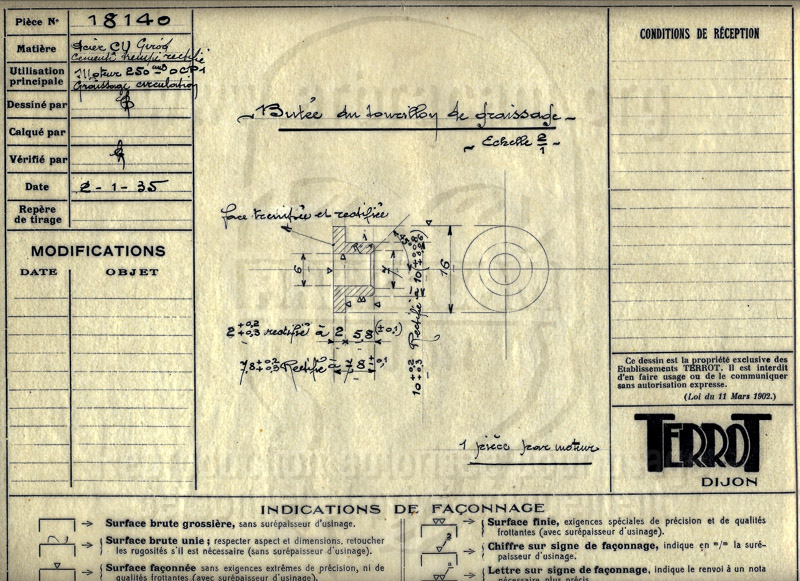 Pièce N° 18140
Matière Acier CV Girod
Cementé trempé rectifié
Utilisation principale Moteur 250 cm3 OCP1
Graissage circulation
Dessiné par
Calqué par
Vérifié par
Date 2-1-35
Repère de tirage
MODIFICATIONS
DATE OBJET
Butée du tourillon de graissage
Echelle 2/1
face trempée et rectifiée
6
7
45°
16
2 +0,2 +0,3 rectifié à 2 5,8 (±0,1)
7,8 +0,2 +0,3 Rectifié à 7,8 ±0,1
10 +0,2 +0,3 Rectifié à 10
1 pièce par moteur
CONDITIONS DE RÉCEPTION
Ce dessin est la propriété exclusive des
Etablissements TERROT. Il est interdit
d'en faire usage ou de le communiquer
sans autorisation expresse.
(Loi du 11 Mars 1902.)
TERROT
DIJON
INDICATIONS DE FAÇONNAGE
Surface brute grossière, sans surépaisseur d'usinage.
Surface brute unie ; respecter aspect et dimensions, retoucher
les rugosités s'il est nécessaire (sans surépaisseur d'usinage).
Surface façonnée sans exigences extrêmes de précision, ni de
qualités frottantes (avec surépaisseur d'usinage).
Surface finie, exigences spéciales de précision et de qualités
frottantes (avec surépaisseur d'usinage).
Chiffre sur signe de façonnage, indique en m/m la suré-
paisseur d'usinage).
Lettre sur signe de façonnage, indique le renvoi à un nota
nécessaire plus précis.